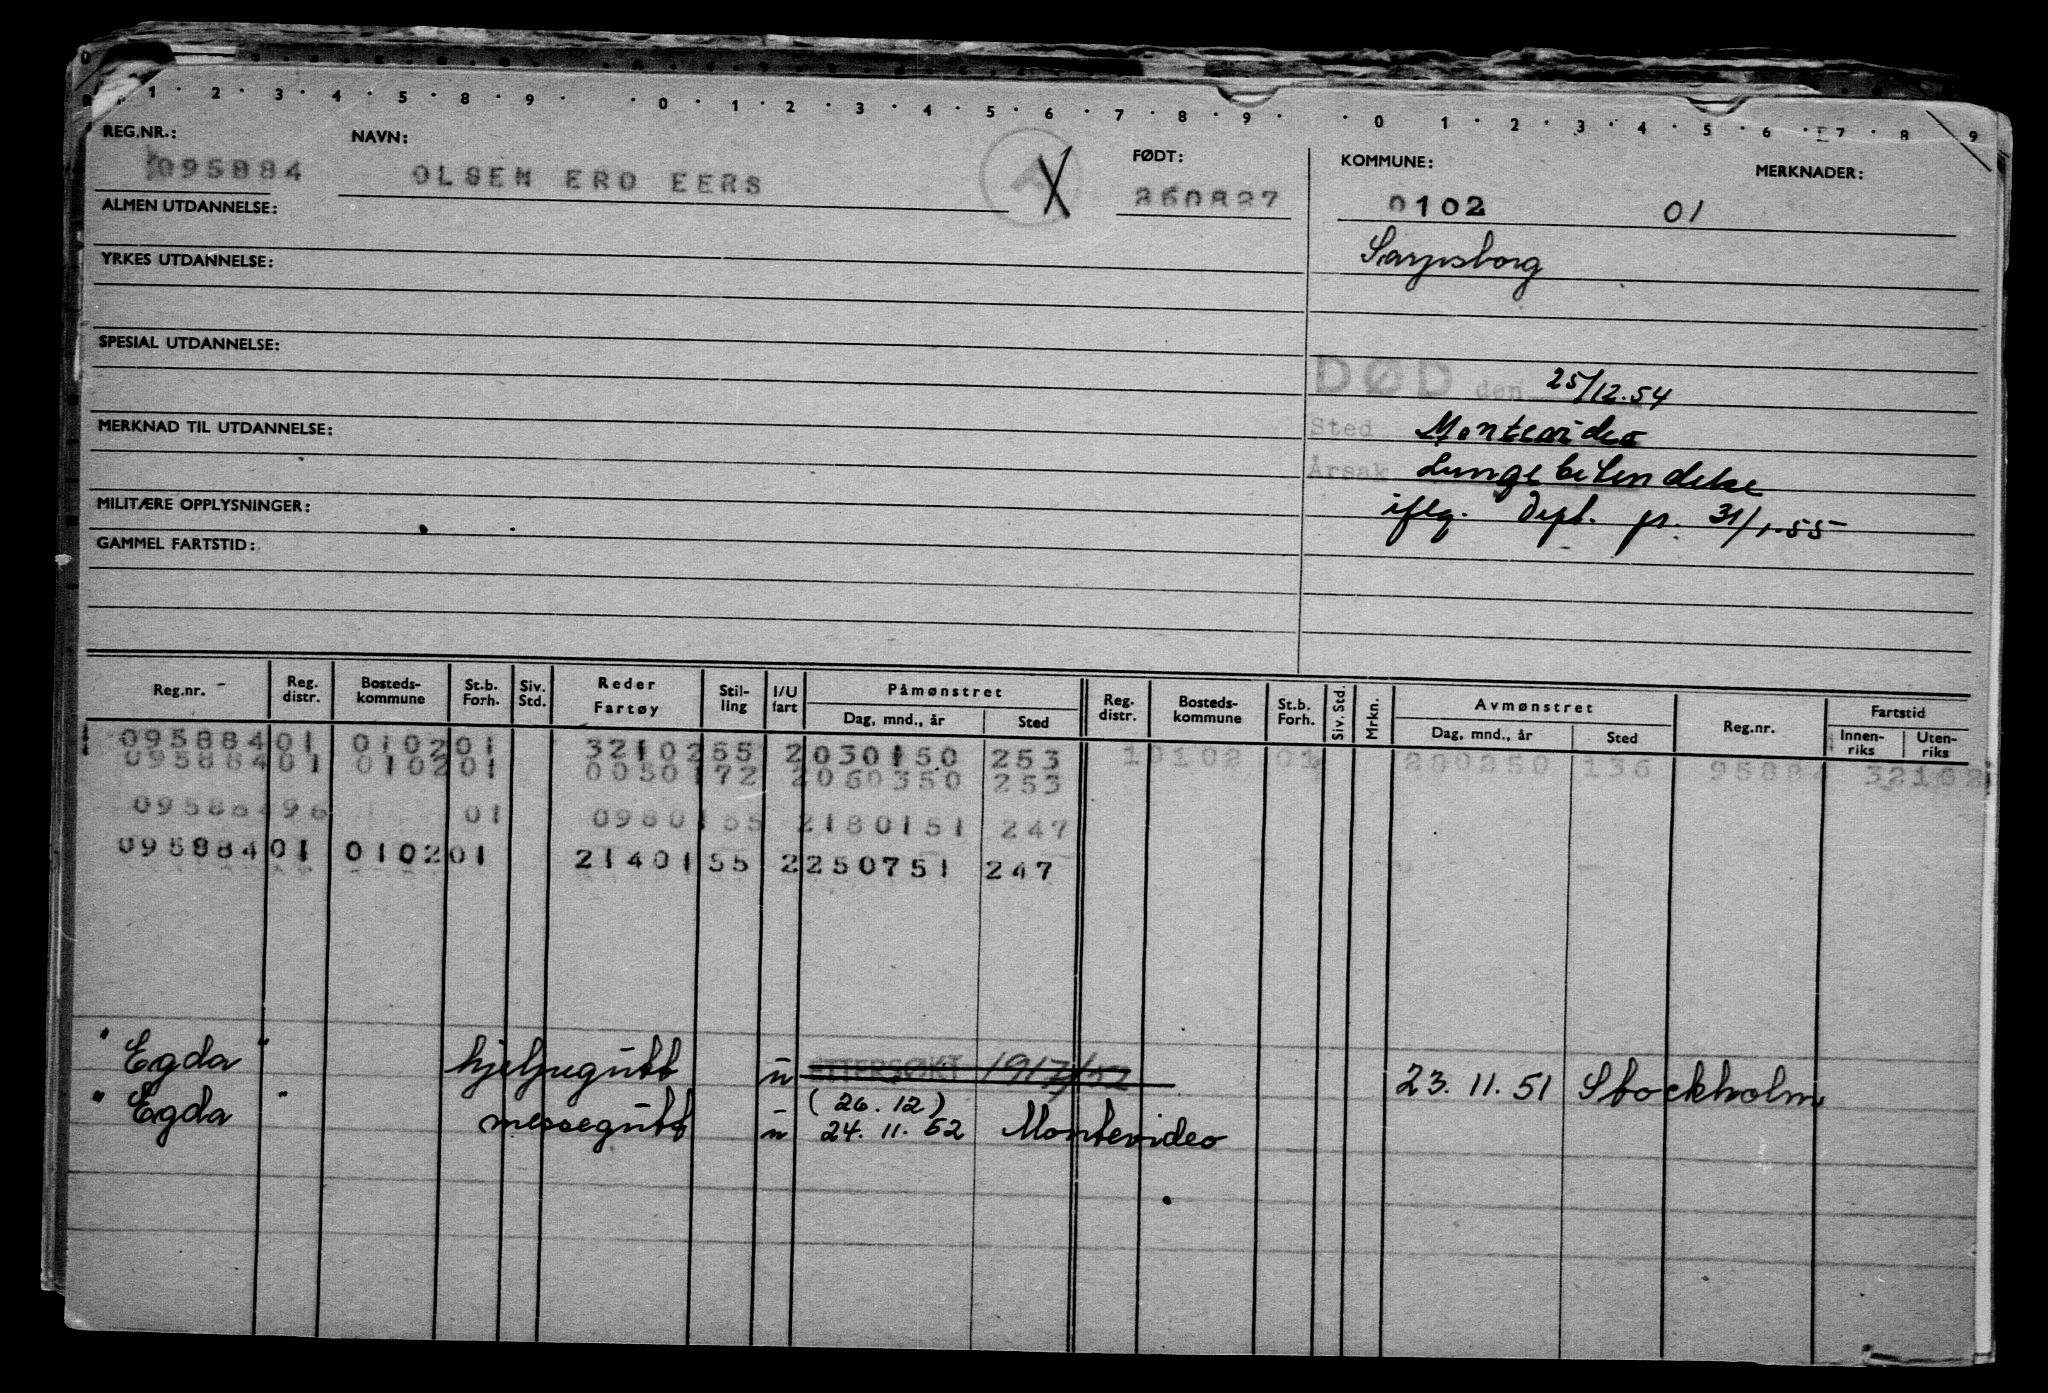 1 · 2 · 3 · 4 · 5 · 8 · 9 · · 0 · 1 · 2 · 3 · 4 · 5 · 6 · 7 · 8 · 9 · · 0 · 1 · 2 · 3 · 4 · 5 · 6 · 7 · 8 · 9
REG.NR.: NAVN: FØDT: KOMMUNE: MERKNADER:
095884 OLSEN ERO EERS 260827 0102 01
ALMEN UTDANNELSE:
Sarpsborg
YRKES UTDANNELSE:
SPESIAL UTDANNELSE:
DØD den 25/12.54
MERKNAD TIL UTDANNELSE:
Sted Montevideo
Årsak Lungebetendelse
MILITÆRE OPPLYSNINGER:
iflg. Dept. pr. 31/1-55
GAMMEL FARTSTID:
Reg.nr. Reg. distr. Bosteds-kommune St.b. Forh. Siv. Std. Reder Fartøy Stil-ling I/U fart Påmønstret Dag, mnd., år Sted Reg. distr. Bosteds-kommune St.b. Forh. Siv. Std. Mrkn. Avmønstret Dag, mnd., år Sted Reg.nr. Fartstid Innen-riks Uten-riks
095884 01 0102 01 3210255 2 030150 253 1 0102 01 200250 136 95884 32102
095884 01 0102 01 0050172 2 060350 253
095884 96 01 0980155 2 180151 247
095884 01 0102 01 2140155 2 250751 247
" Egda " hjelpegutt u ETTERSØKT 23.11.51 Stockholm
(26.12)
" Egda " messegutt u 24.11.52 Montevideo